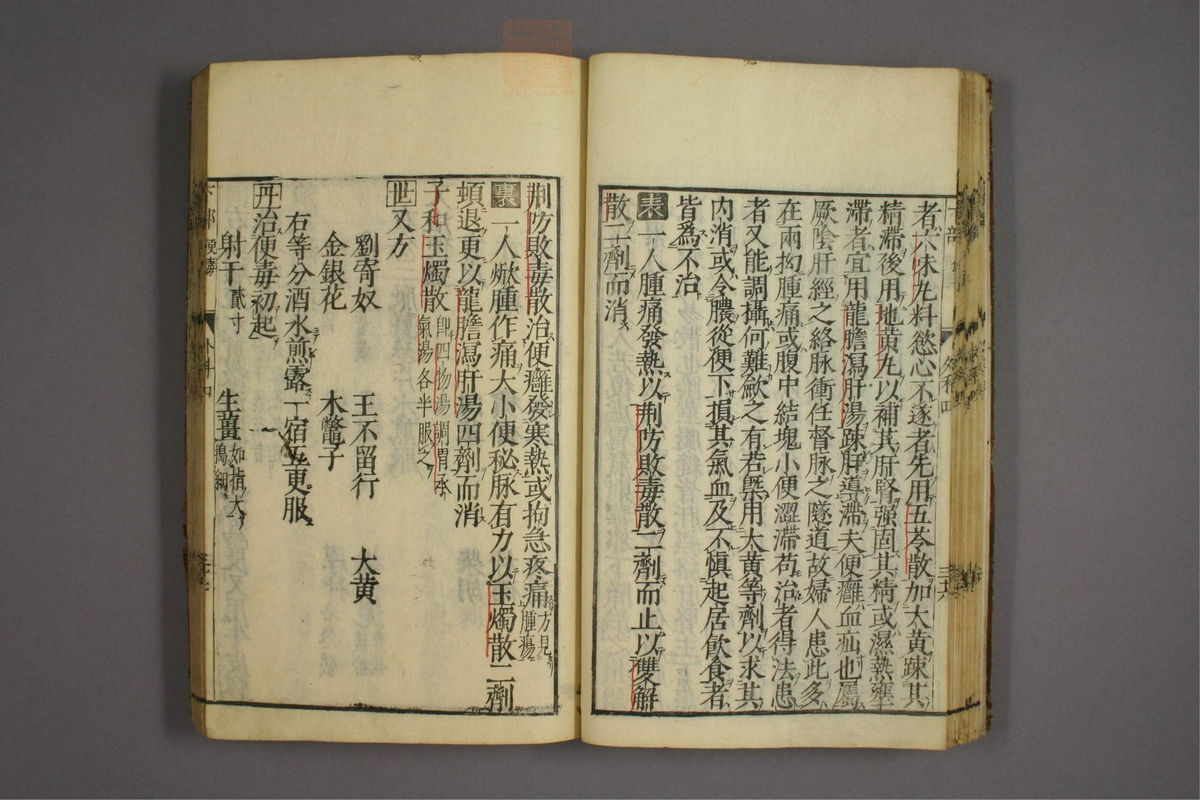 者六味丸料慾心不遂者先用五苓散加大黄踈其
精滯後用地黄丸以補其肝腎强固其精或濕熱壅
滯者宜用龍膽瀉肝湯踈肝導滯夫便癰血疝也屬
厥陰肝經之絡脉衝任督脉之隧道故婦人患此多
在兩拗腫痛或腹中結塊小便澀滯苟治者得法患
者又能調攝何難歛之有若槩用大黄等劑以求其
内消或令膿從便下損其氣血及不慎起居飲食者
皆為不治
表一人腫痛發熱以荆防敗毒散二劑而止以雙解
散二劑而消
外科四
三十六
荆防敗毒散治便癰發寒熱或拘急疼痛方見腫瘍
裏一人焮腫作痛大小便秘脉有力以玉燭散二劑
頓退更以龍膽瀉肝湯四劑而消
子和玉燭散即四物湯調胃承氣湯各半服之
世又方
劉寄奴 王不留行 大黄
金銀花 木鱉子
右等分酒水煎露一宿五更服
丹治便毒初起
射干貳寸 生薑如指大搗細
外科四